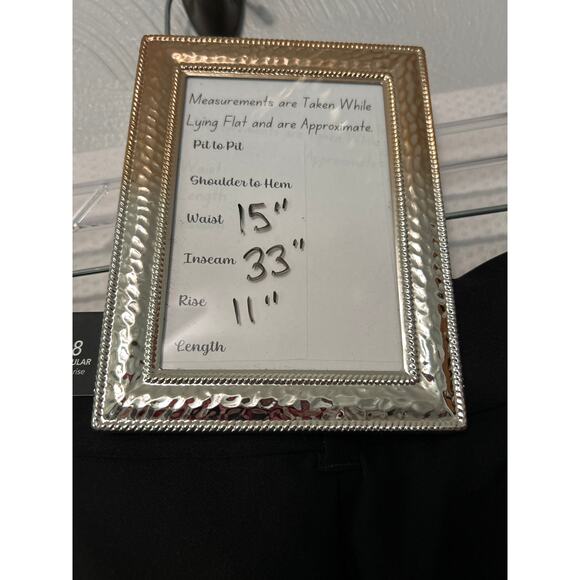 Measurements are Taken While
Lying Flat and are Approximate.
Pit to Pit
Shoulder to Hem
Waist 15"
Inseam 33"
Rise 11"
Length
8
rise